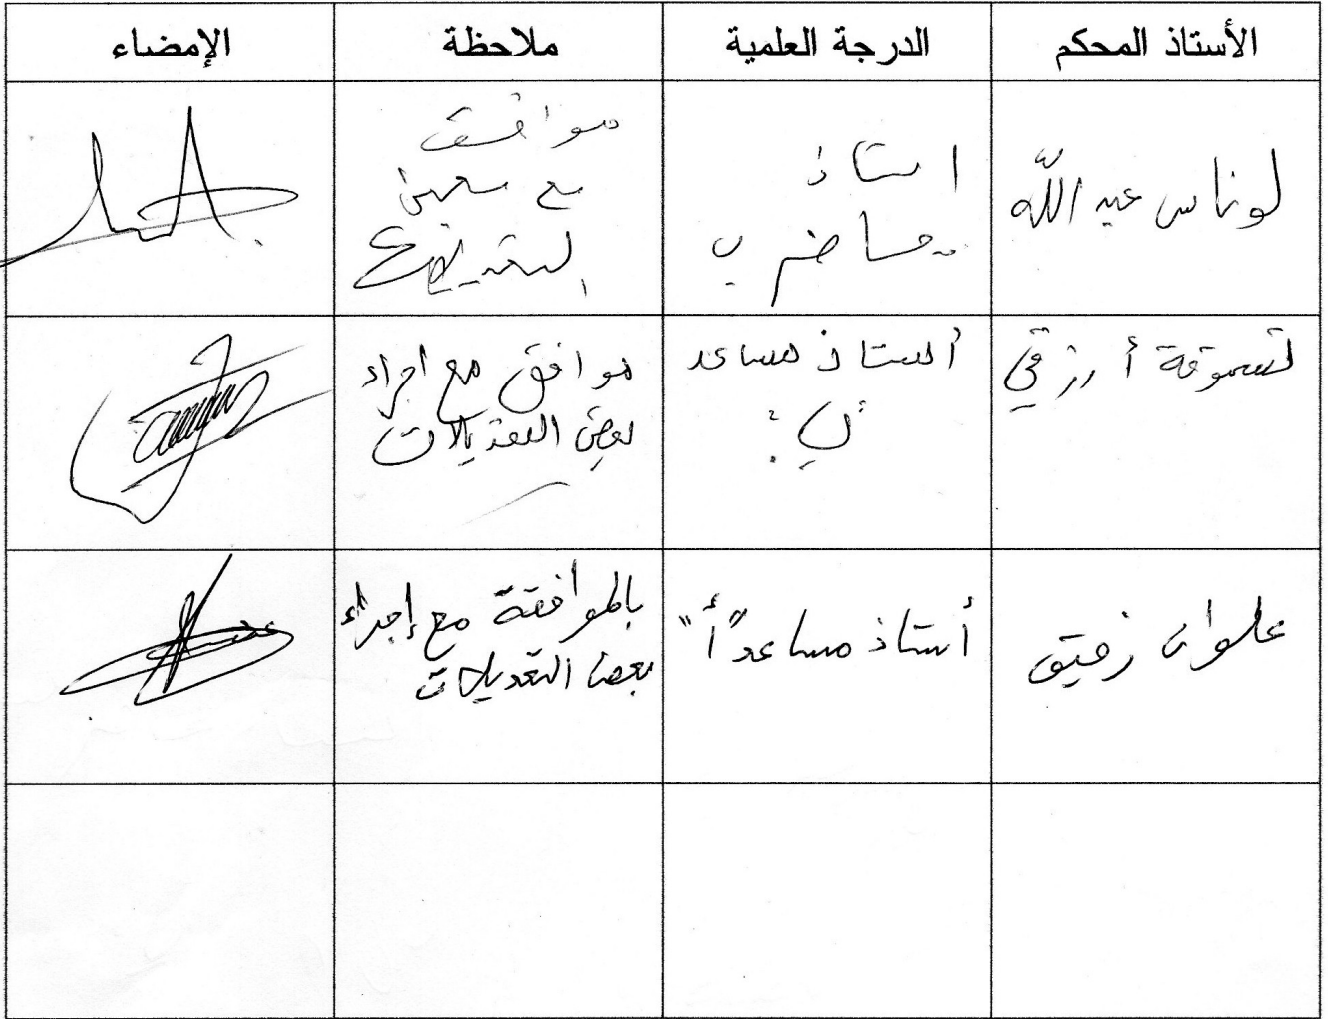 الأستاذ المحكم الدرجة العلمية ملاحظة الإمضاء
لوناس عبد الله
استاذ
محاضر ب
موافق
مع بعض
التعديلات
تسموقة أرزقي
أستاذ مساعد
موافق مع اجراء
بعض التعديلات
علوان رفيق
أستاذ مساعد "أ"
بالموافقة مع إجراء
بعض التعديلات